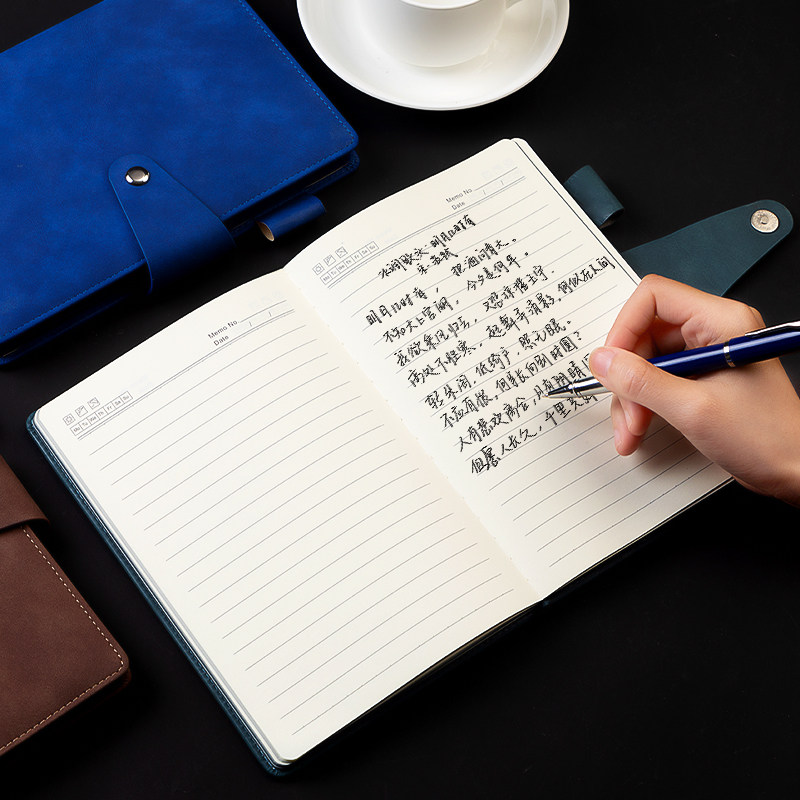 Memo No.
Date / /
Mo Tu We Th Fr Sa Su
Memo No.
Date / /
Mo Tu We Th Fr Sa Su
水调歌头·明月几时有
宋·苏轼
明月几时有，把酒问青天。
不知天上宫阙，今夕是何年。
我欲乘风归去，又恐琼楼玉宇
高处不胜寒，起舞弄清影，何似在人间
转朱阁，低绮户，照无眠。
不应有恨，何事长向别时圆？
人有悲欢离合，月有阴晴
但愿人长久，千里共